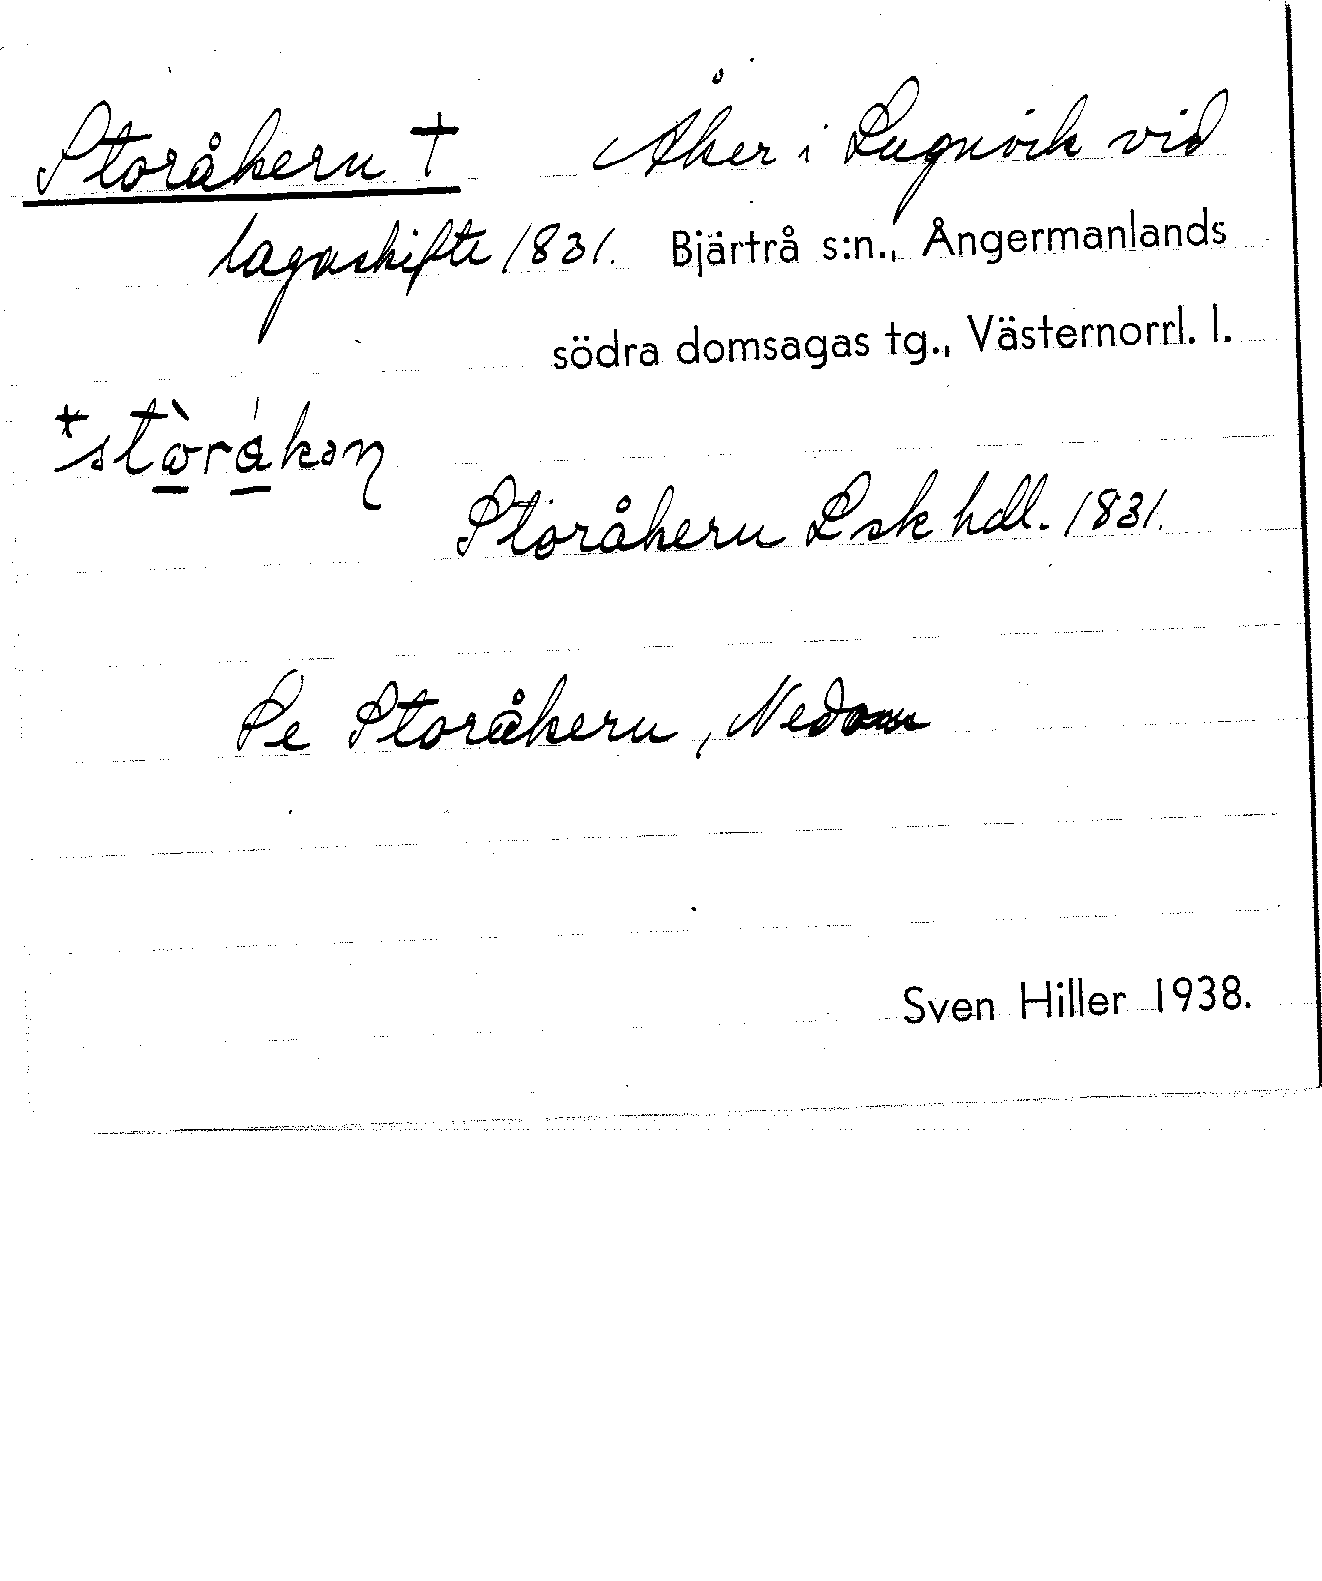 Storåkern † Åker i Lugnvik vid
lagaskifte 1831. Bjärtrå s:n., Ångermanlands
södra domsagas tg., Västernorrl. l.
Storåkern Lsk hdl. 1831.
Se Storåkern, Nedom
Sven Hiller 1938.